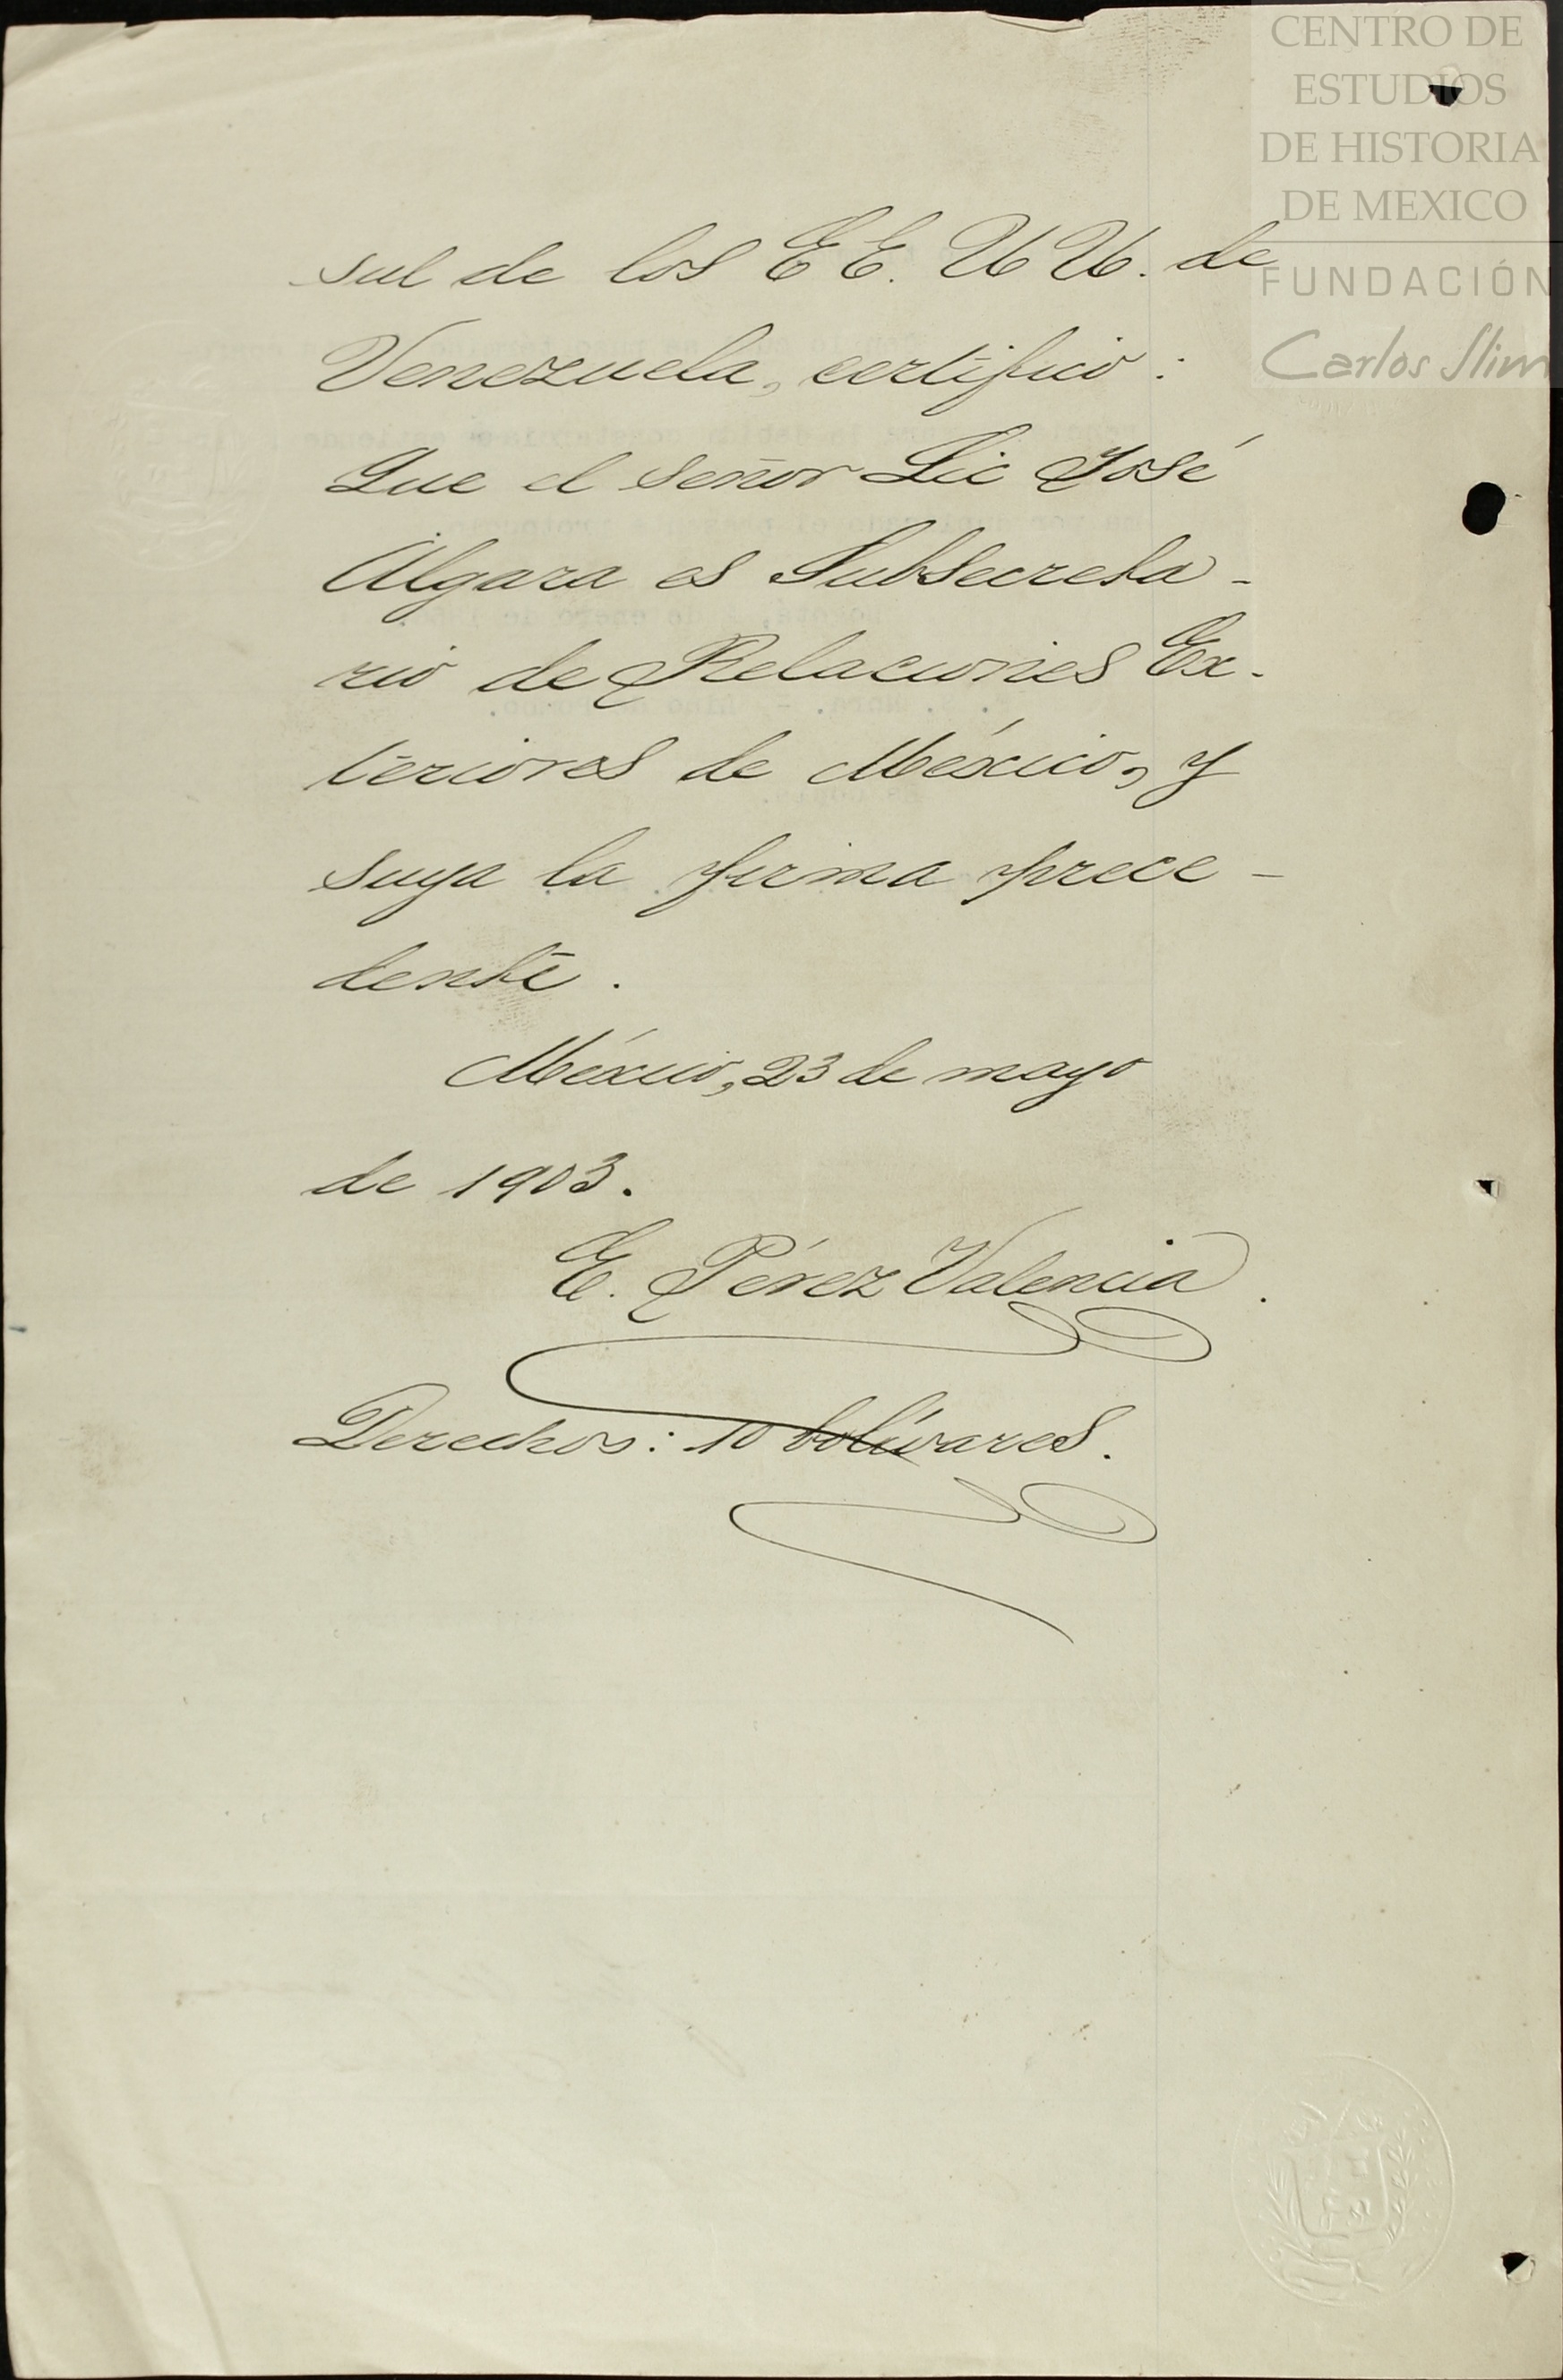 CENTRO DE
ESTUDIOS
DE HISTORIA
DE MEXICO
FUNDACIÓN
Carlos Slim
sul de los EE. UU. de
Venezuela, certifico:
Que el señor Lic José
Algara es Subsecreta-
rio de Relaciones Ex-
teriores de México, y
suya la firma prece-
dente.
México, 23 de mayo
de 1903.
E. Pérez Valencia.
Derechos: 10 bolívares.